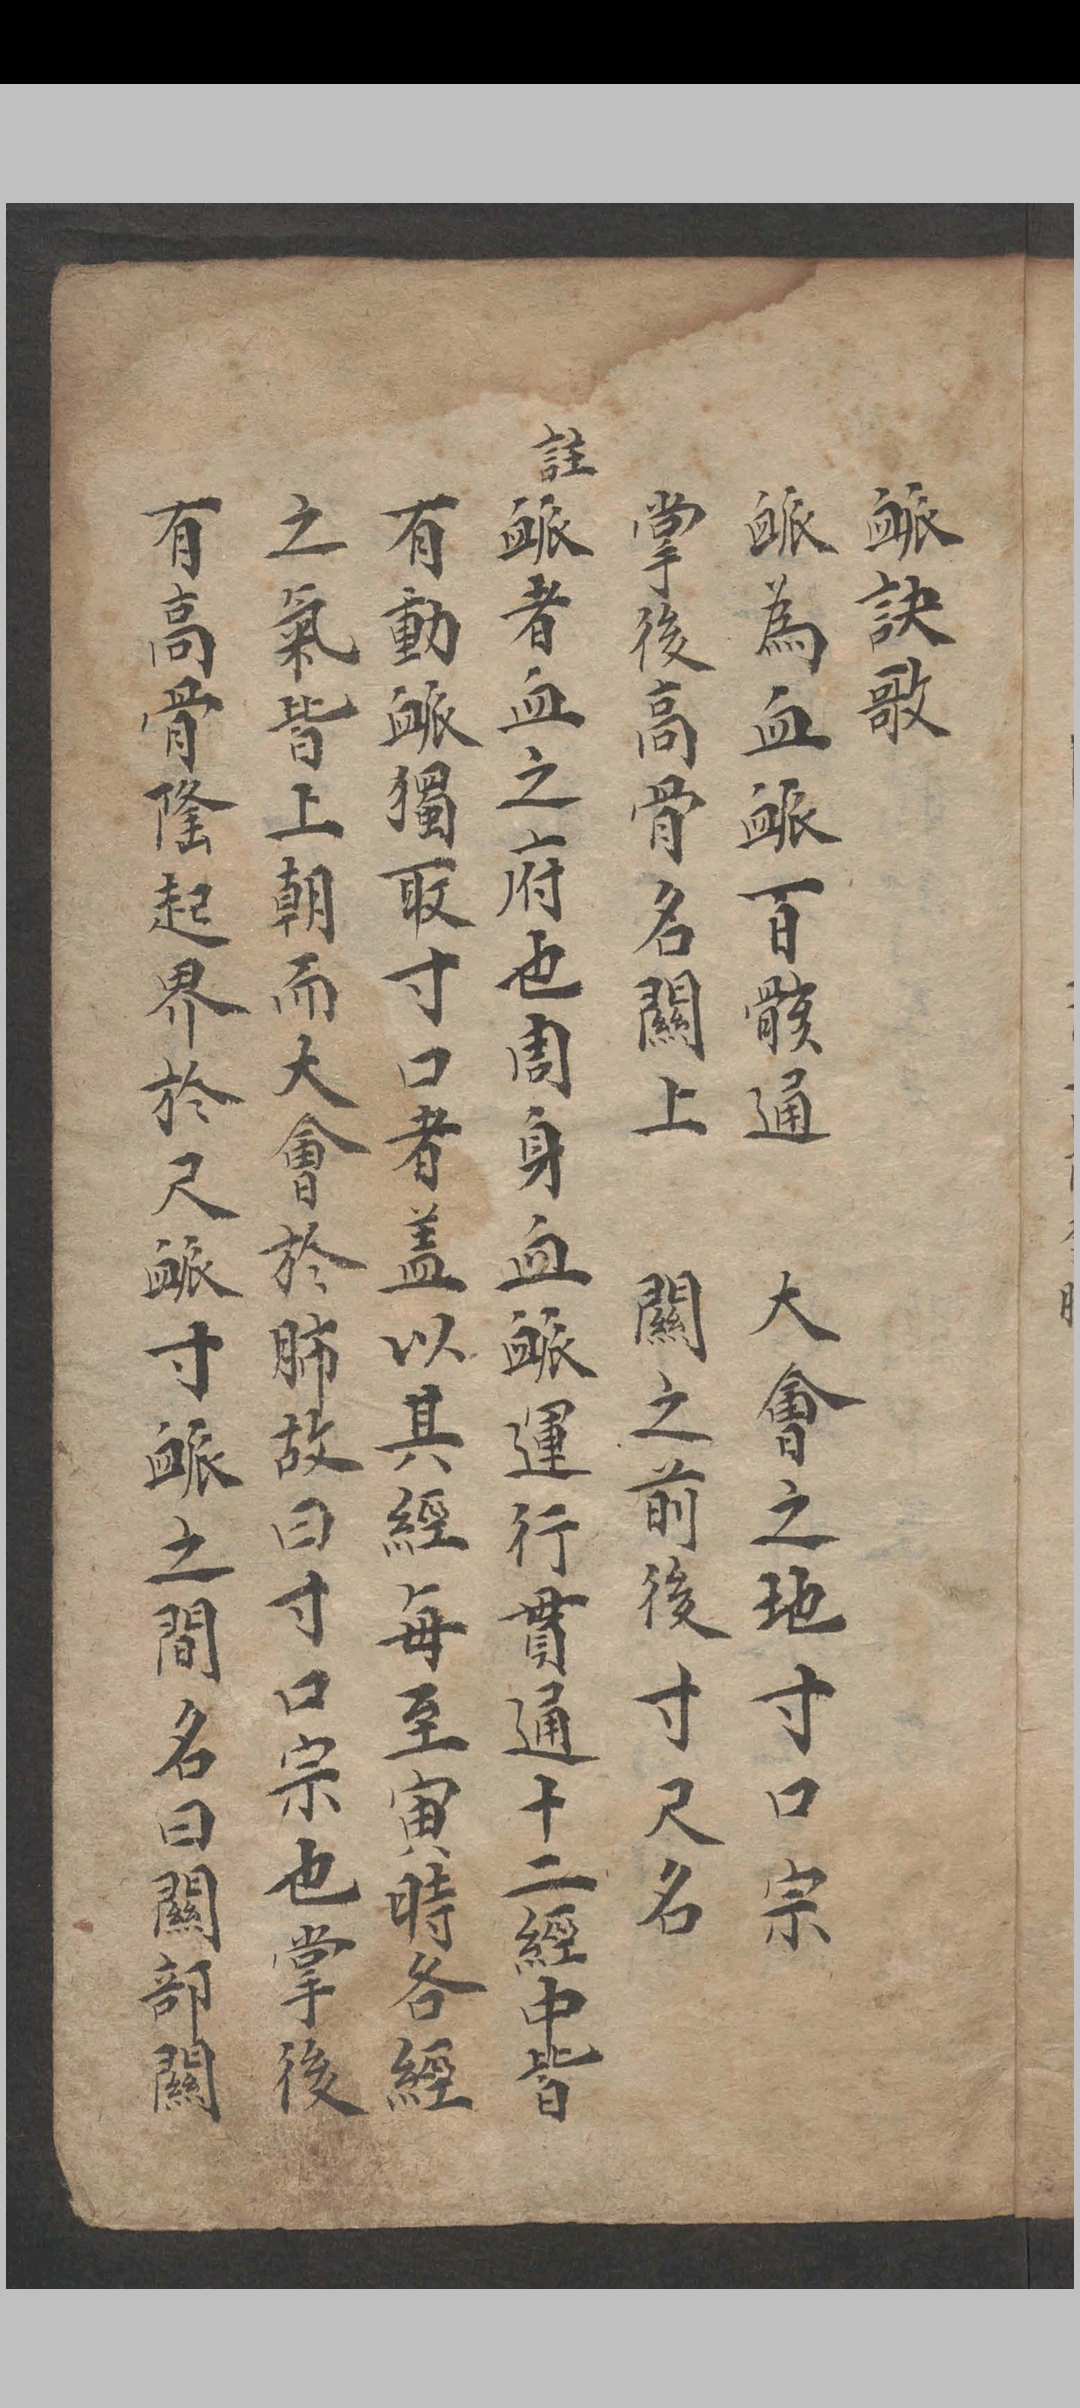 衇訣歌
衇為血衇百骸通　大會之地寸口宗
掌後高骨名關上　關之前後寸尺名
註衇者血之府也周身血衇運行貫通十二經中皆
有動衇獨取寸口者盖以其經每至寅時各經
之氣皆上朝而大會於肺故曰寸口宗也掌後
有高骨隆起界於尺衇寸衇之間名曰關部關